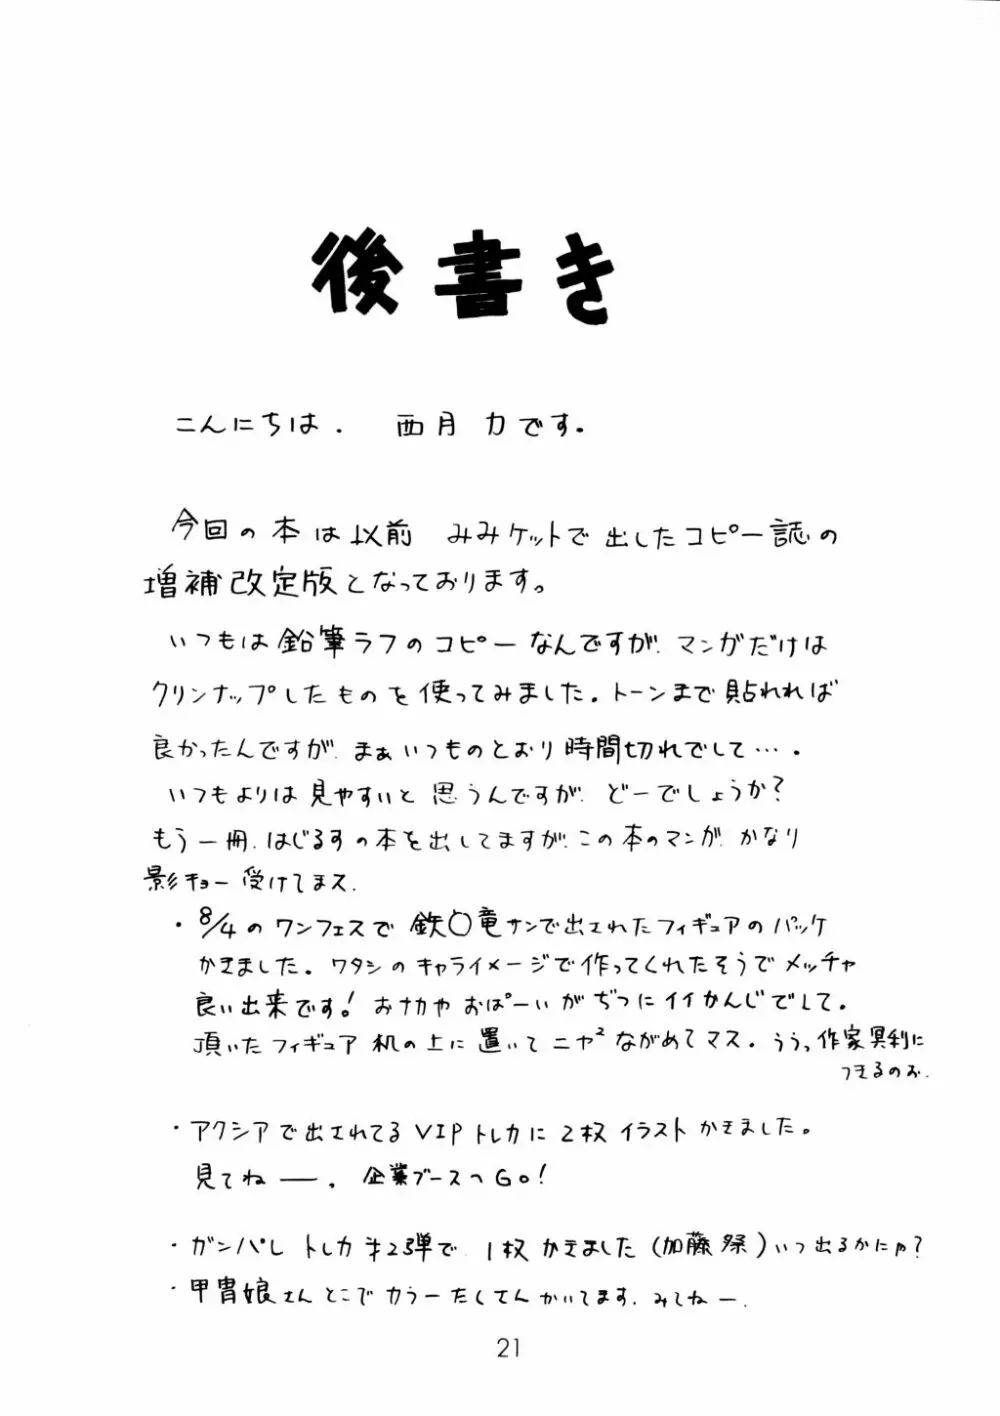 後書き
こんにちは. 西月 力です。
今回の本は以前 みみケットで出したコピー誌の
増補改定版となっております。
いつもは鉛筆ラフのコピーなんですが、マンガだけは
クリンナップしたものを使ってみました。トーンまで貼れれば
良かったんですが、まぁいつものとおり時間切れでして…。
いつもよりは見やすいと思うんですが、どーでしょうか?
もう一冊、はじるすの本を出してますが、この本のマンガ、かなり
影キョー受けてまス.
・8/4のワンフェスで鉄〇竜サンで出されたフィギュアのパッケ
かきました。ワタシのキャライメージで作ってくれたそうでメッチャ
良い出来です!おナカやおぱーいがぢつにイイかんじでして。
頂いたフィギュア机の上に置いてニヤ²ながめてマス。ううっ、作家冥利に
つきるのお.
・アクシアで出されてるVIPトレカに2枚イラストかきました。
見てねー。企業ブースへGo!
・ガンパレトレカ#2弾で、1枚かきました(加藤祭)いつ出るかにゃ?
・甲冑娘さんとこでカラーたくさんかいてます、みてねー.
21